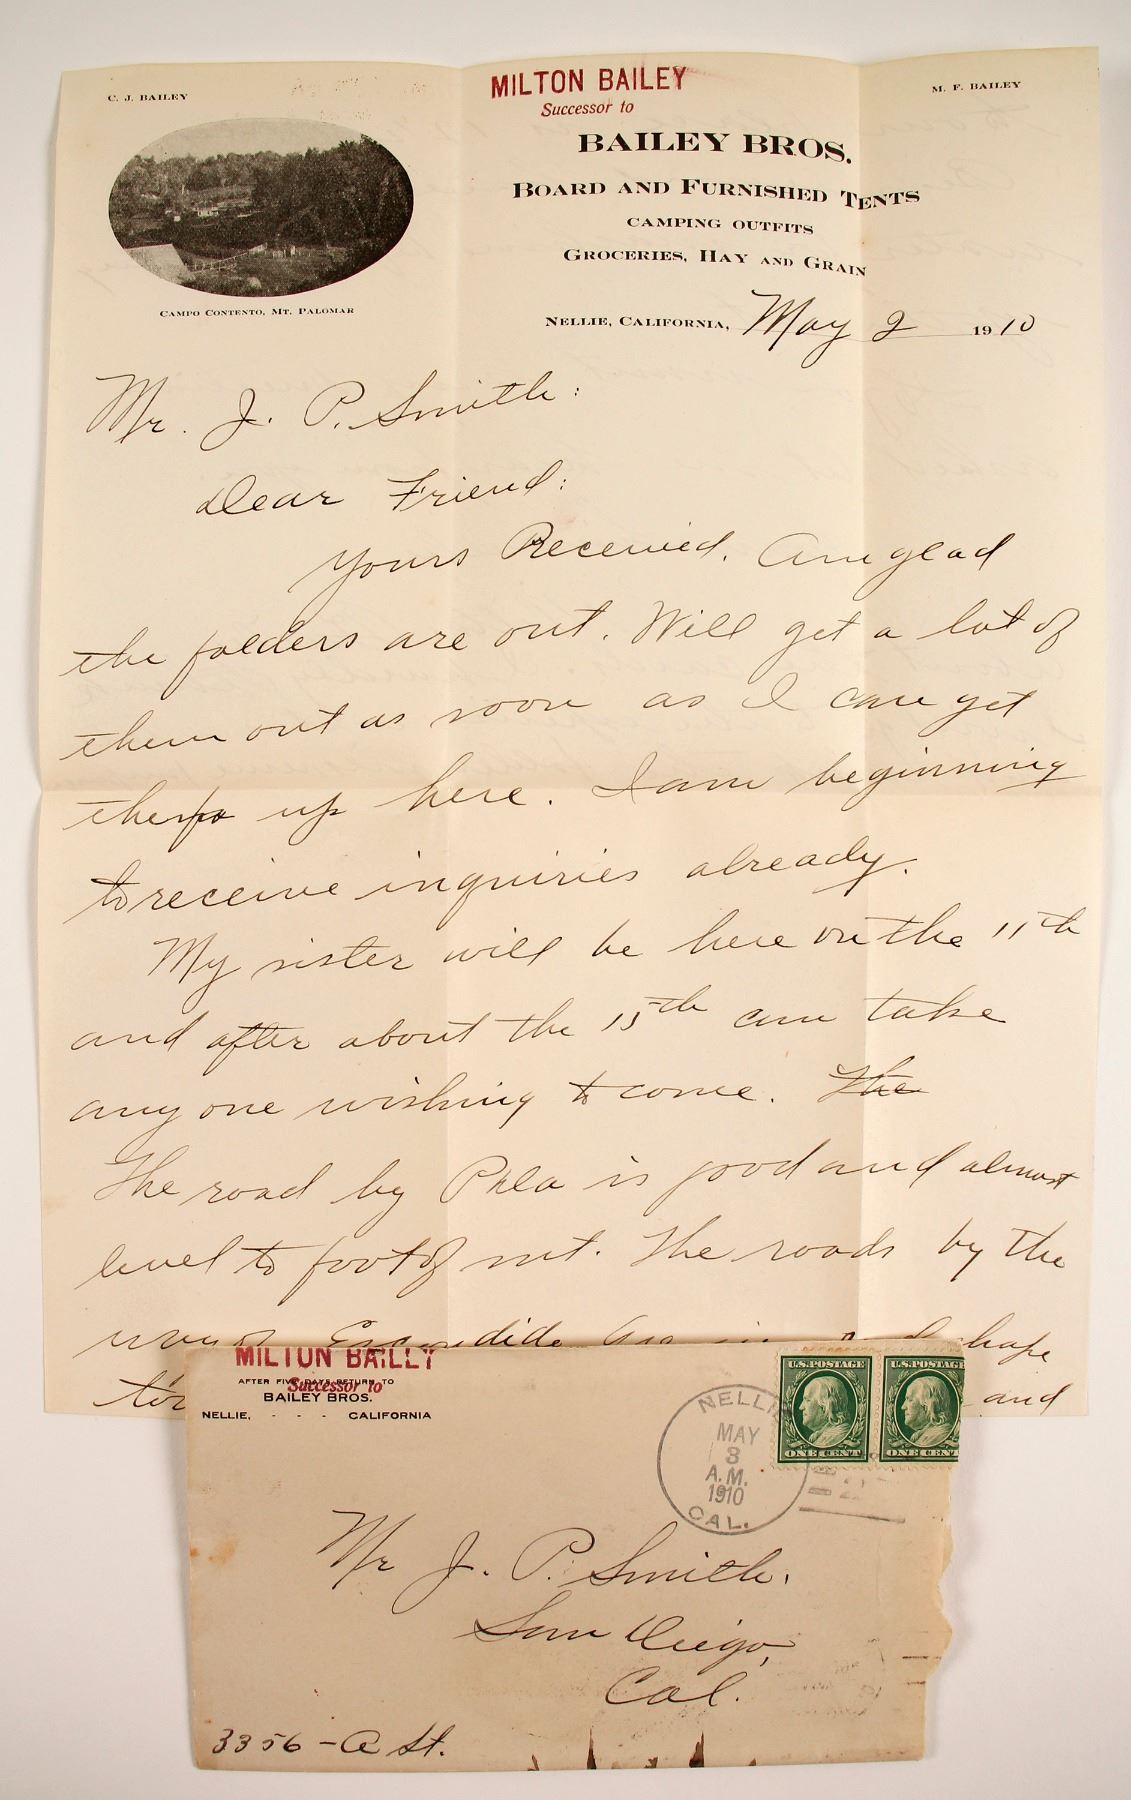 C. J. BAILEY
MILTON BAILEY
Successor to
M. F. BAILEY
BAILEY BROS.
BOARD AND FURNISHED TENTS
CAMPING OUTFITS
GROCERIES, HAY AND GRAIN
CAMPO CONTENTO, MT. PALOMAR
NELLIE, CALIFORNIA, May 2 1910
Mr. J. P. Smith:
Dear Friend:
Yours Received. Am glad
the folders are out. Will get a lot of
them out as soon as I can get
them up here. I am beginning
to receive inquiries already.
My sister will be here on the 11th
and after about the 15th can take
any one wishing to come. The
The road by Pala is good and almost
level to foot of mt. The roads by the
way of Escondido are in shape
and
MILTON BAILEY
AFTER FIVE DAYS RETURN TO
Successor to
BAILEY BROS.
NELLIE, - - - CALIFORNIA
NELLIE
MAY
3
A.M.
1910
CAL.
U.S. POSTAGE
ONE CENT
U.S. POSTAGE
ONE CENT
Mr J. P. Smith,
San Diego,
Cal.
3356 - A St.